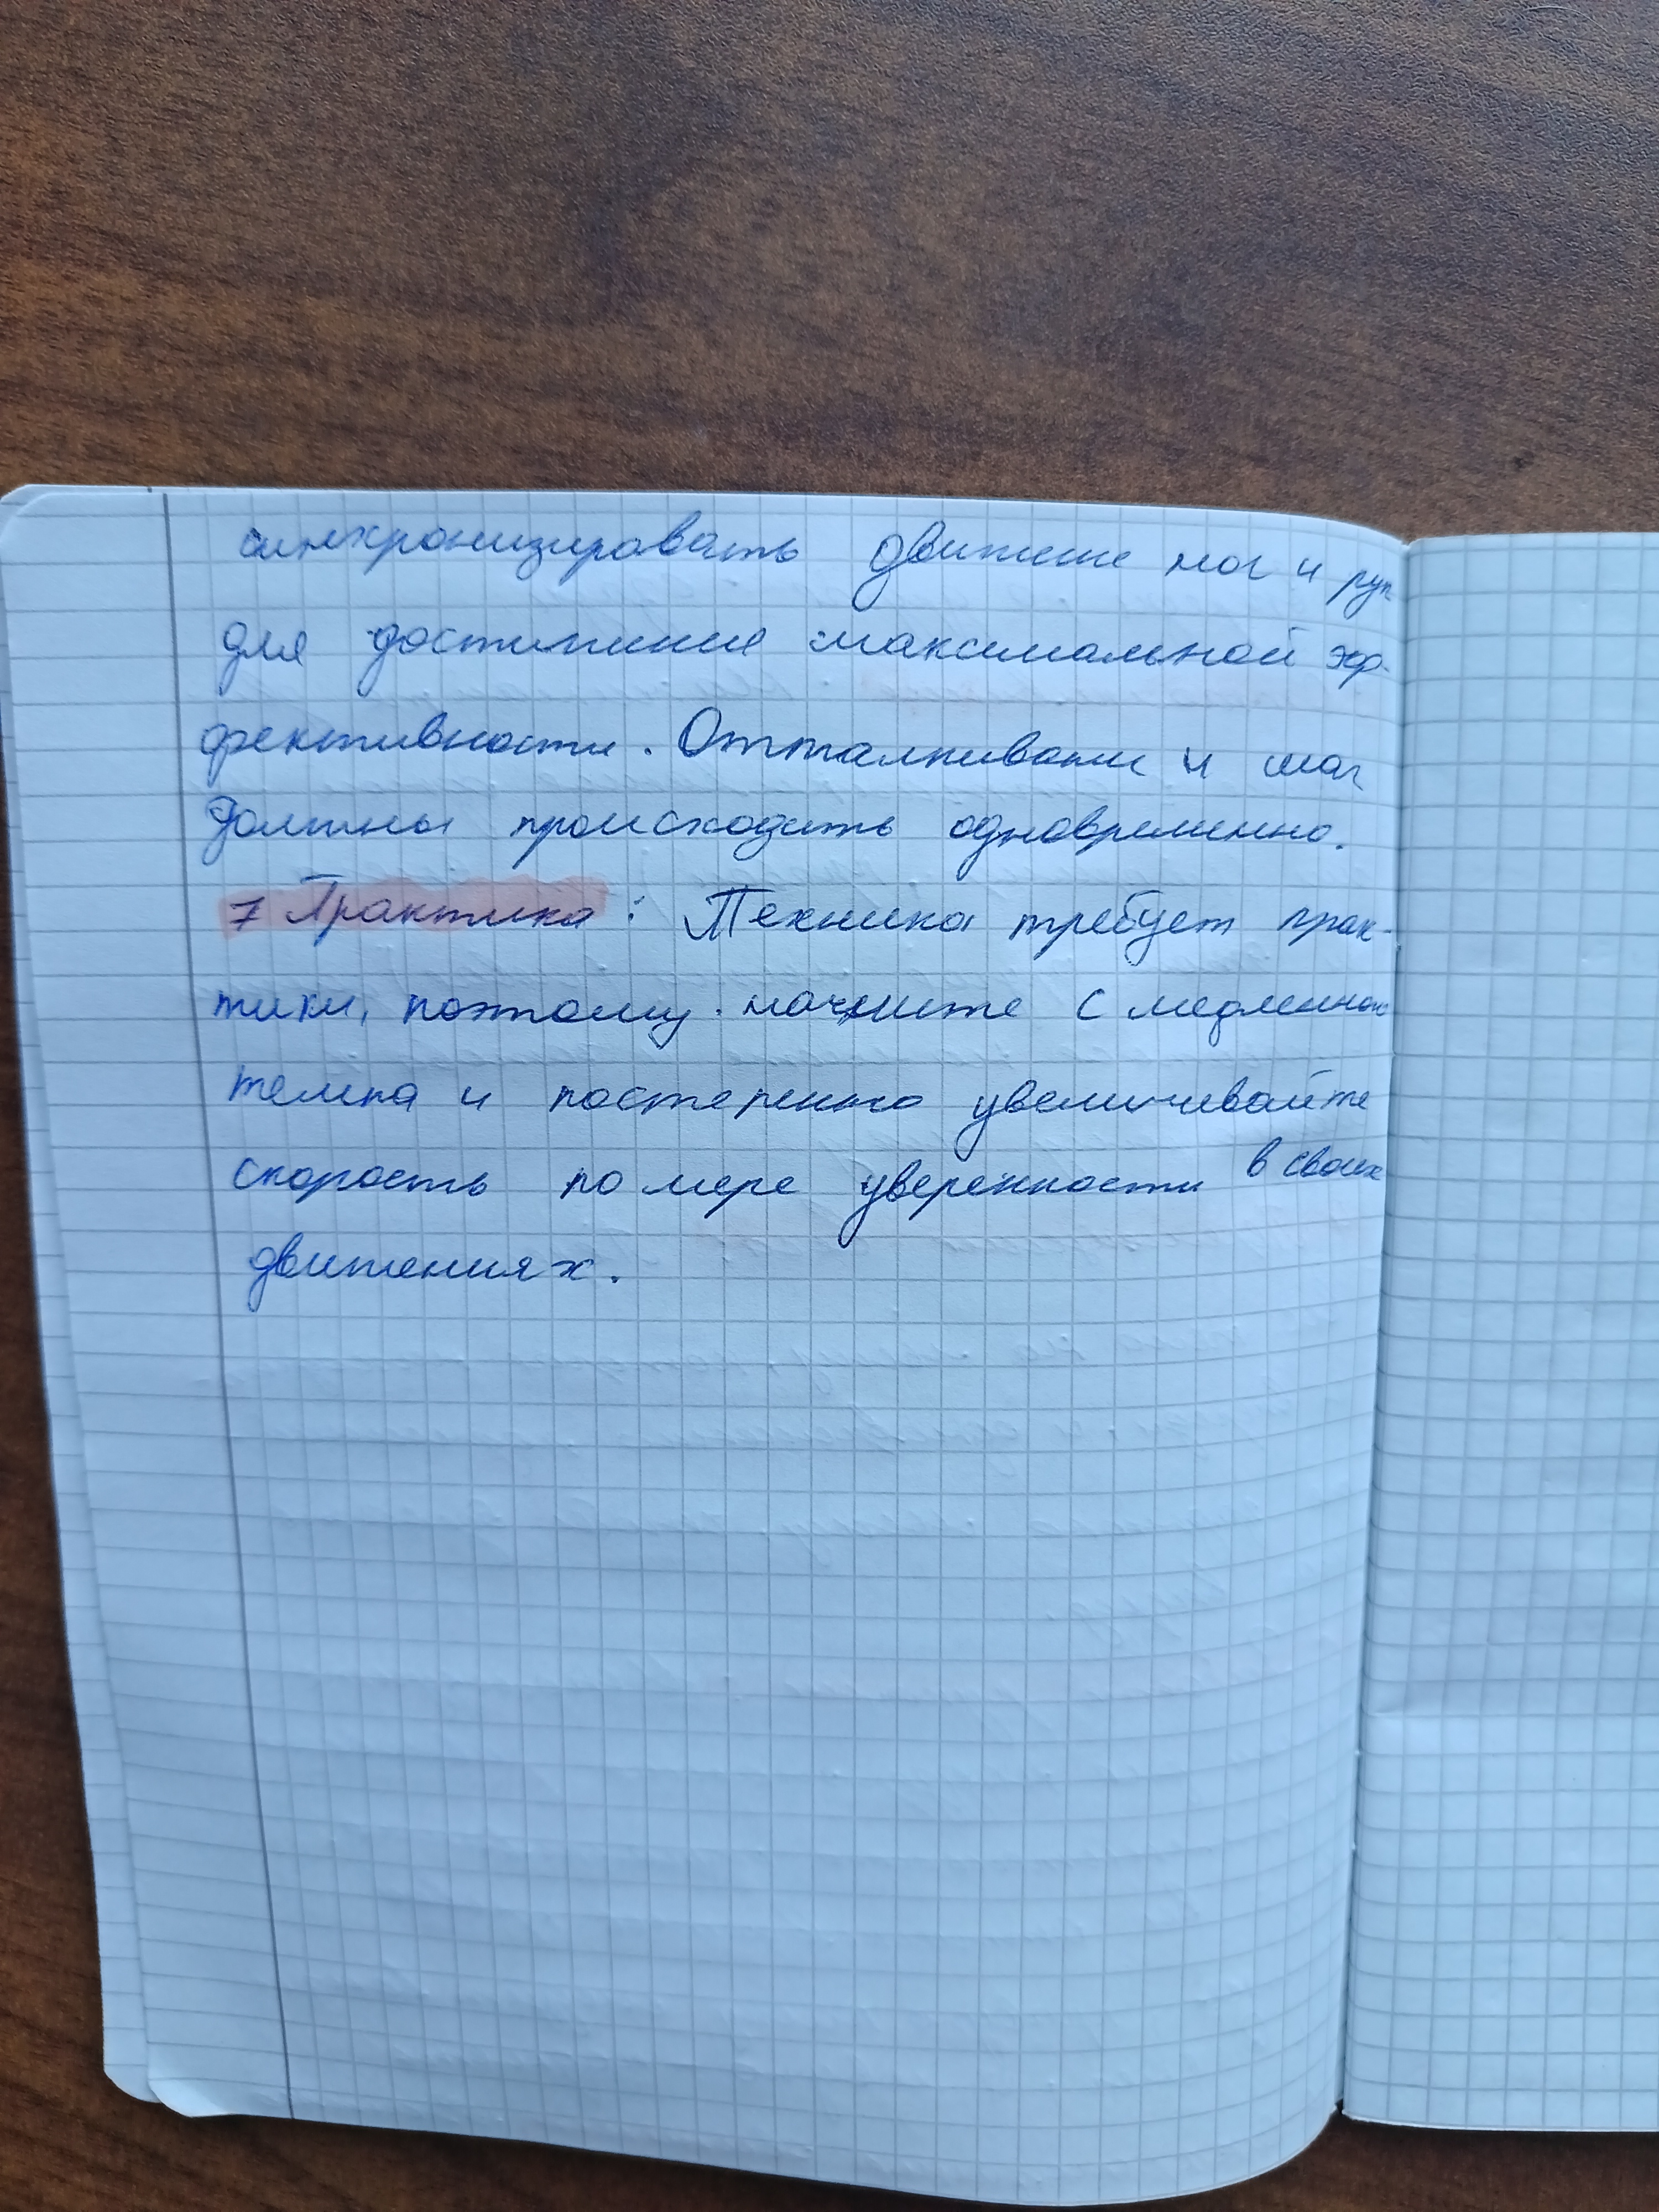 синхронизировать движение ног и рук
для достижения максимальной эф-
фективности. Отталкивание и шаг
должны происходить одновременно.
7 Практика: Техника требует прак-
тики, поэтому начните с медленного
темпа и постепенно увеличивайте
скорость по мере уверенности в своих
движениях.